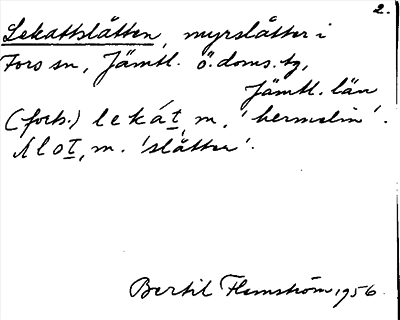 2.
Lekattslåtten, myrslåtter i
Fors sn, Jämtl. ö. doms. tg,
Jämtl. län
(forts.) lekát, m. 'hermelin'.
slot, m. 'slåtter'.
Bertil Flemström 1956